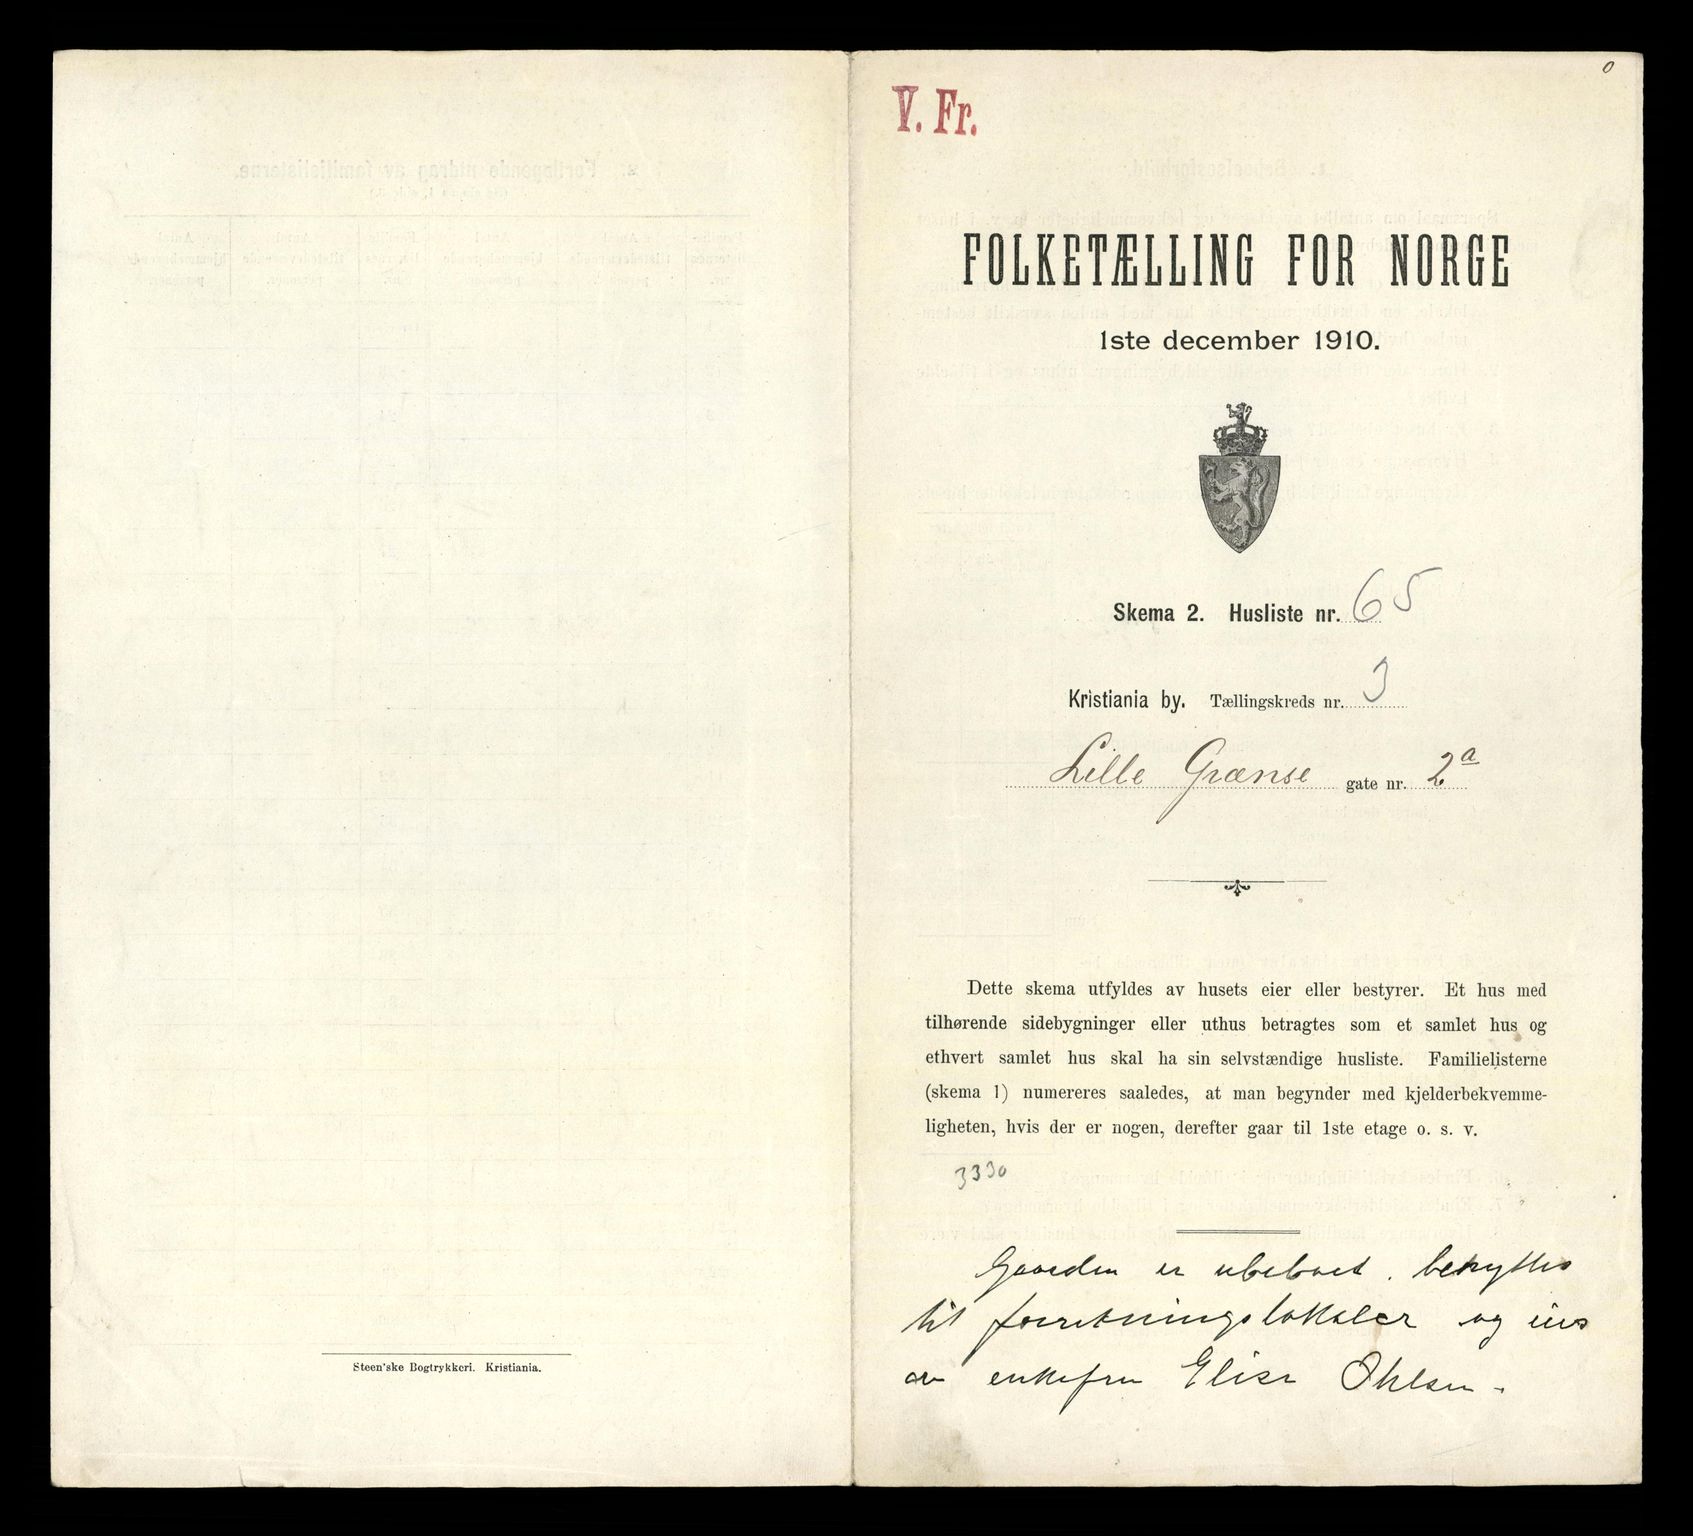 0
V. Fr.
FOLKETÆLLING FOR NORGE
1ste december 1910.
Skema 2. Husliste nr. 65
Kristiania by. Tællingskreds nr. 3
Lille Grænse gate nr. 2a
Dette skema utfyldes av husets eier eller bestyrer. Et hus med
tilhørende sidebygninger eller uthus betragtes som et samlet hus og
ethvert samlet hus skal ha sin selvstændige husliste. Familielisterne
(skema 1) numereres saaledes, at man begynder med kjelderbekvemme-
ligheten, hvis der er nogen, derefter gaar til 1ste etage o. s. v.
3330
Gaarden er ubeboet. benyttes
til forretningslokaler og eies
av enkefru Elise Ohlsen.
Steen'ske Bogtrykkeri. Kristiania.